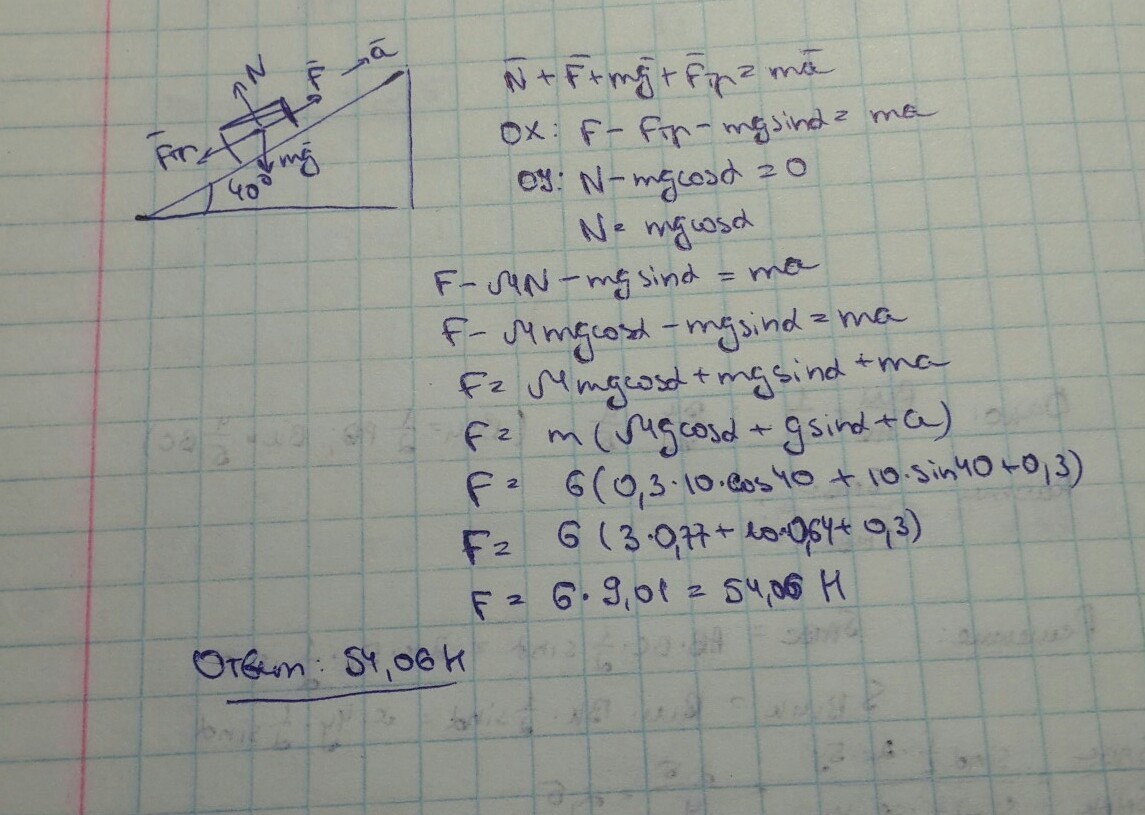 N̄
F̄
ā
F̄тр
mḡ
40°
N̄ + F̄ + mḡ + F̄тр = mā
OX: F - Fтр - mgsinα = ma
OY: N - mgcosα = 0
N = mgcosα
F - μN - mgsinα = ma
F - μmgcosα - mgsinα = ma
F = μmgcosα + mgsinα + ma
F = m(μgcosα + gsinα + a)
F = 6(0,3·10·cos40 + 10·sin40+0,3)
F = 6(3·0,77+10·0,64+0,3)
F = 6·9,01 = 54,06 Н
Ответ: 54,06 Н